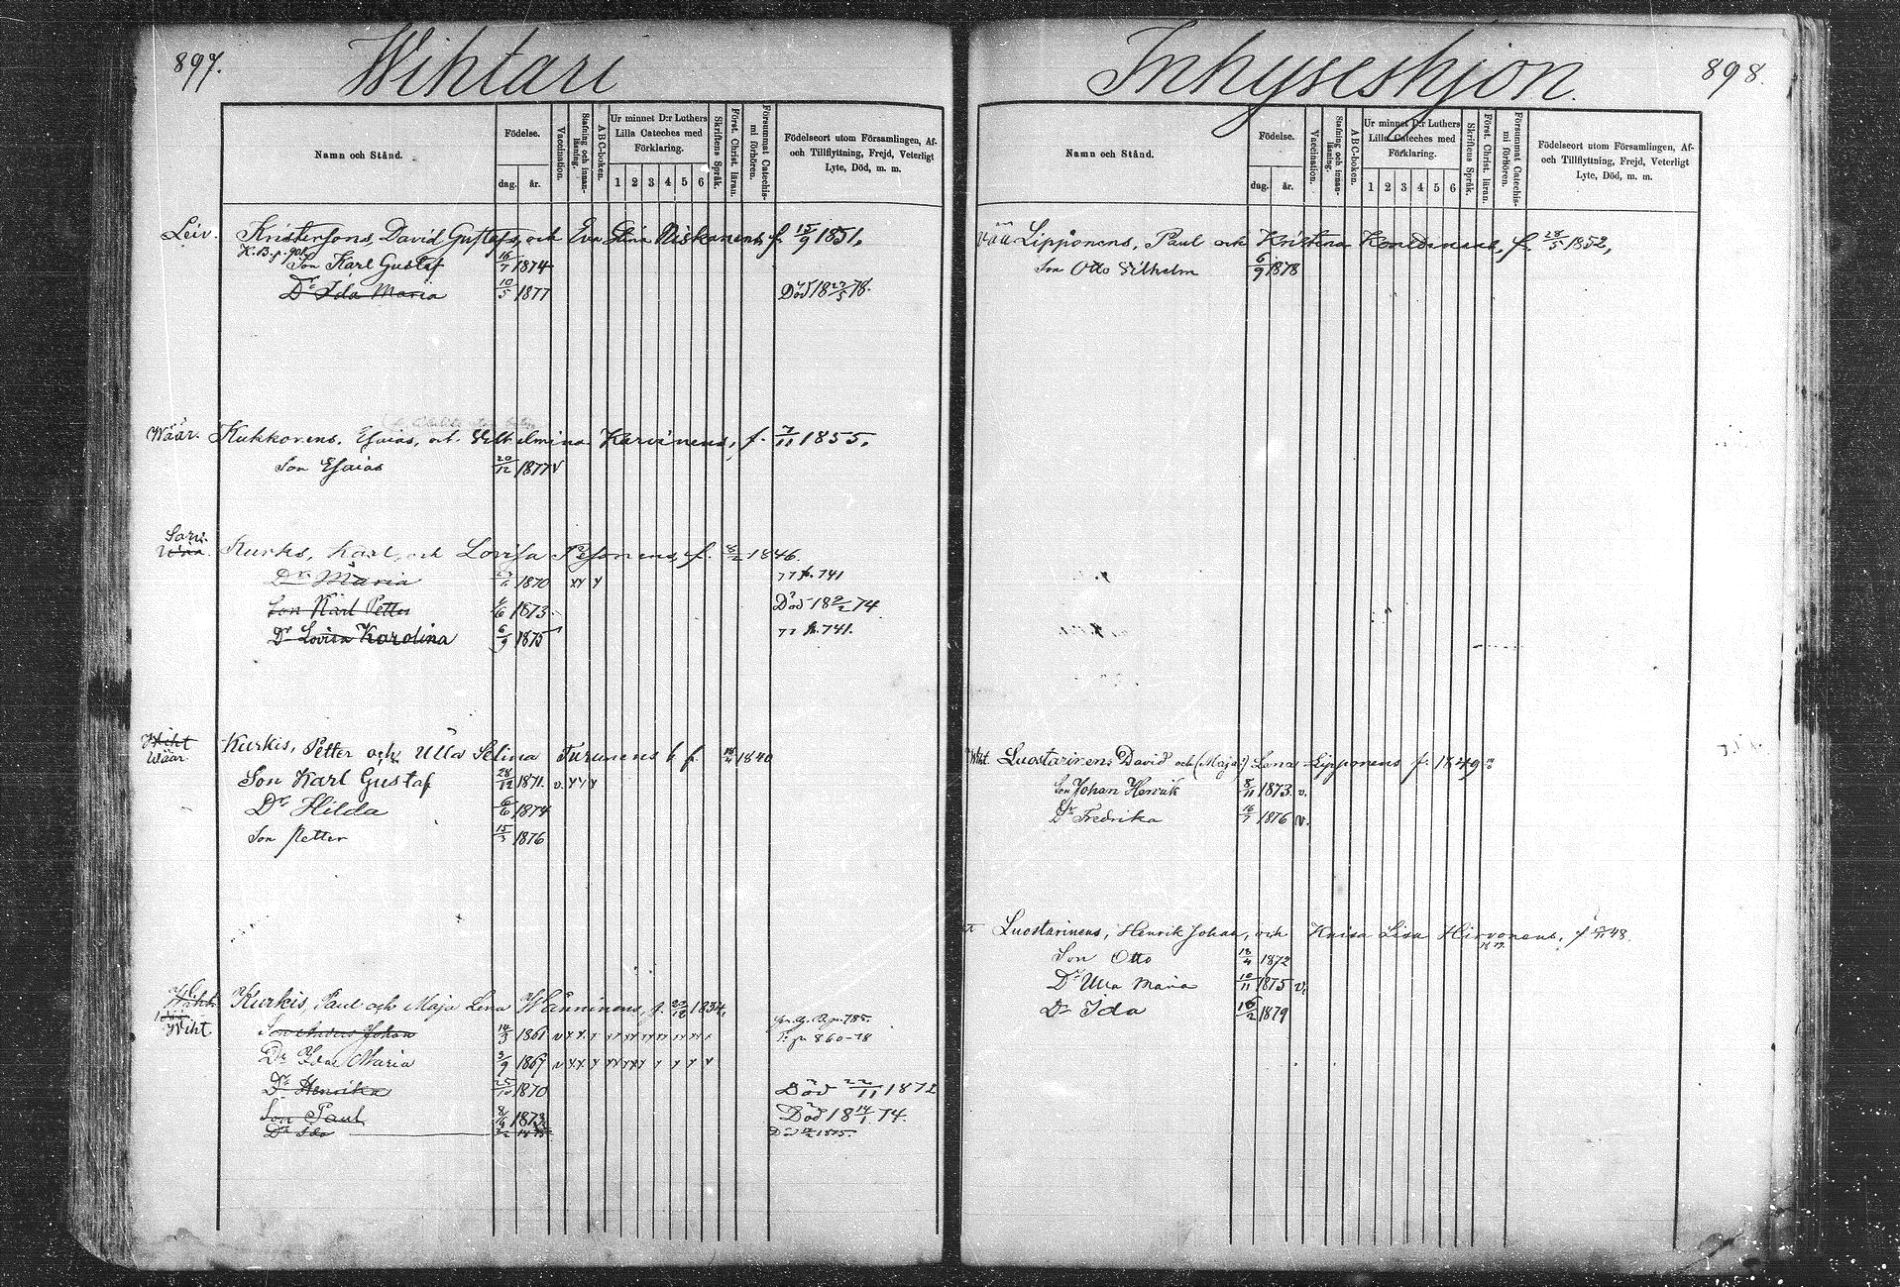 897.
Wihtari
Namn och Stånd.
Födelse.
dag.
år.
Vaccination.
Stafning och innanläsning.
ABC-boken.
Ur minnet D:r Luthers Lilla Cateches med Förklaring.
1 2 3 4 5 6
Skriftens Språk.
Först. Christ. läran.
Försummat Catechismi förhören.
Födelseort utom Församlingen, Af- och Tillflyttning, Frejd, Veterligt Lyte, Död, m. m.
Leiv. Kristersons, David Gustafs, och Eva Stina Niskanens, f. 15/9 1851.
K.B.p. 901
Son Karl Gustaf 16/7 1874
Dr Ida Maria 10/5 1877 Död 18 27/5 78.
Wäär. Kukkonens, Esaias, och Wilhelmina Karvinens, f. 7/11 1855.
Son Esaias 20/12 1877 v
Sarv.
Kurkis, Karl, och Lovisa Pesonens, f. 1846
Dr Maria 1870 77 p. 741
Son Karl Petter 1873 Död 18 2/2 74
Dr Lovisa Karolina 6/9 1875 77 p. 741.
Wiht
Wäär Kurkis, Petter och Ulla Selina Turunens f. 1840
Son Karl Gustaf 28/12 1871.
Dr Hilda 6/6 1874
Son Petter 15/3 1876
Wiht Kurkis, Paul och Maja Lena Wänninens, f. 22/12 1834.
Son Anders Johan 1861
Dr Ida Maria 3/9 1867
Dr Henrika 25/10 1870 Död 22/11 1872
Son Paul 1873 Död 18 14/1 74.
Dr Ida Död 1875.
898.
Inhyseshjon.
Namn och Stånd.
Födelse.
dag.
år.
Vaccination.
Stafning och innanläsning.
ABC-boken.
Ur minnet D:r Luthers Lilla Cateches med Förklaring.
1 2 3 4 5 6
Skriftens Språk.
Först. Christ. läran.
Försummat Catechismi förhören.
Födelseort utom Församlingen, Af- och Tillflyttning, Frejd, Veterligt Lyte, Död, m. m.
Lipponens, Paul och Kristina f. 28/5 1852,
Son Otto Vilhelm 6/9 1878
Wiht. Luostarinens David och (Maja) Lena Lipponens f. 1849
Son Johan Henrik 8/11 1873 v.
Dr Fredrika 16/7 1876 v.
Luostarinens, Henrik Johan, och Kaisa Lisa Hirvonens, f. 48.
Son Otto 18/4 1872
Dr Ulla Maria 10/11 1875 v.
Dr Ida 16/2 1879